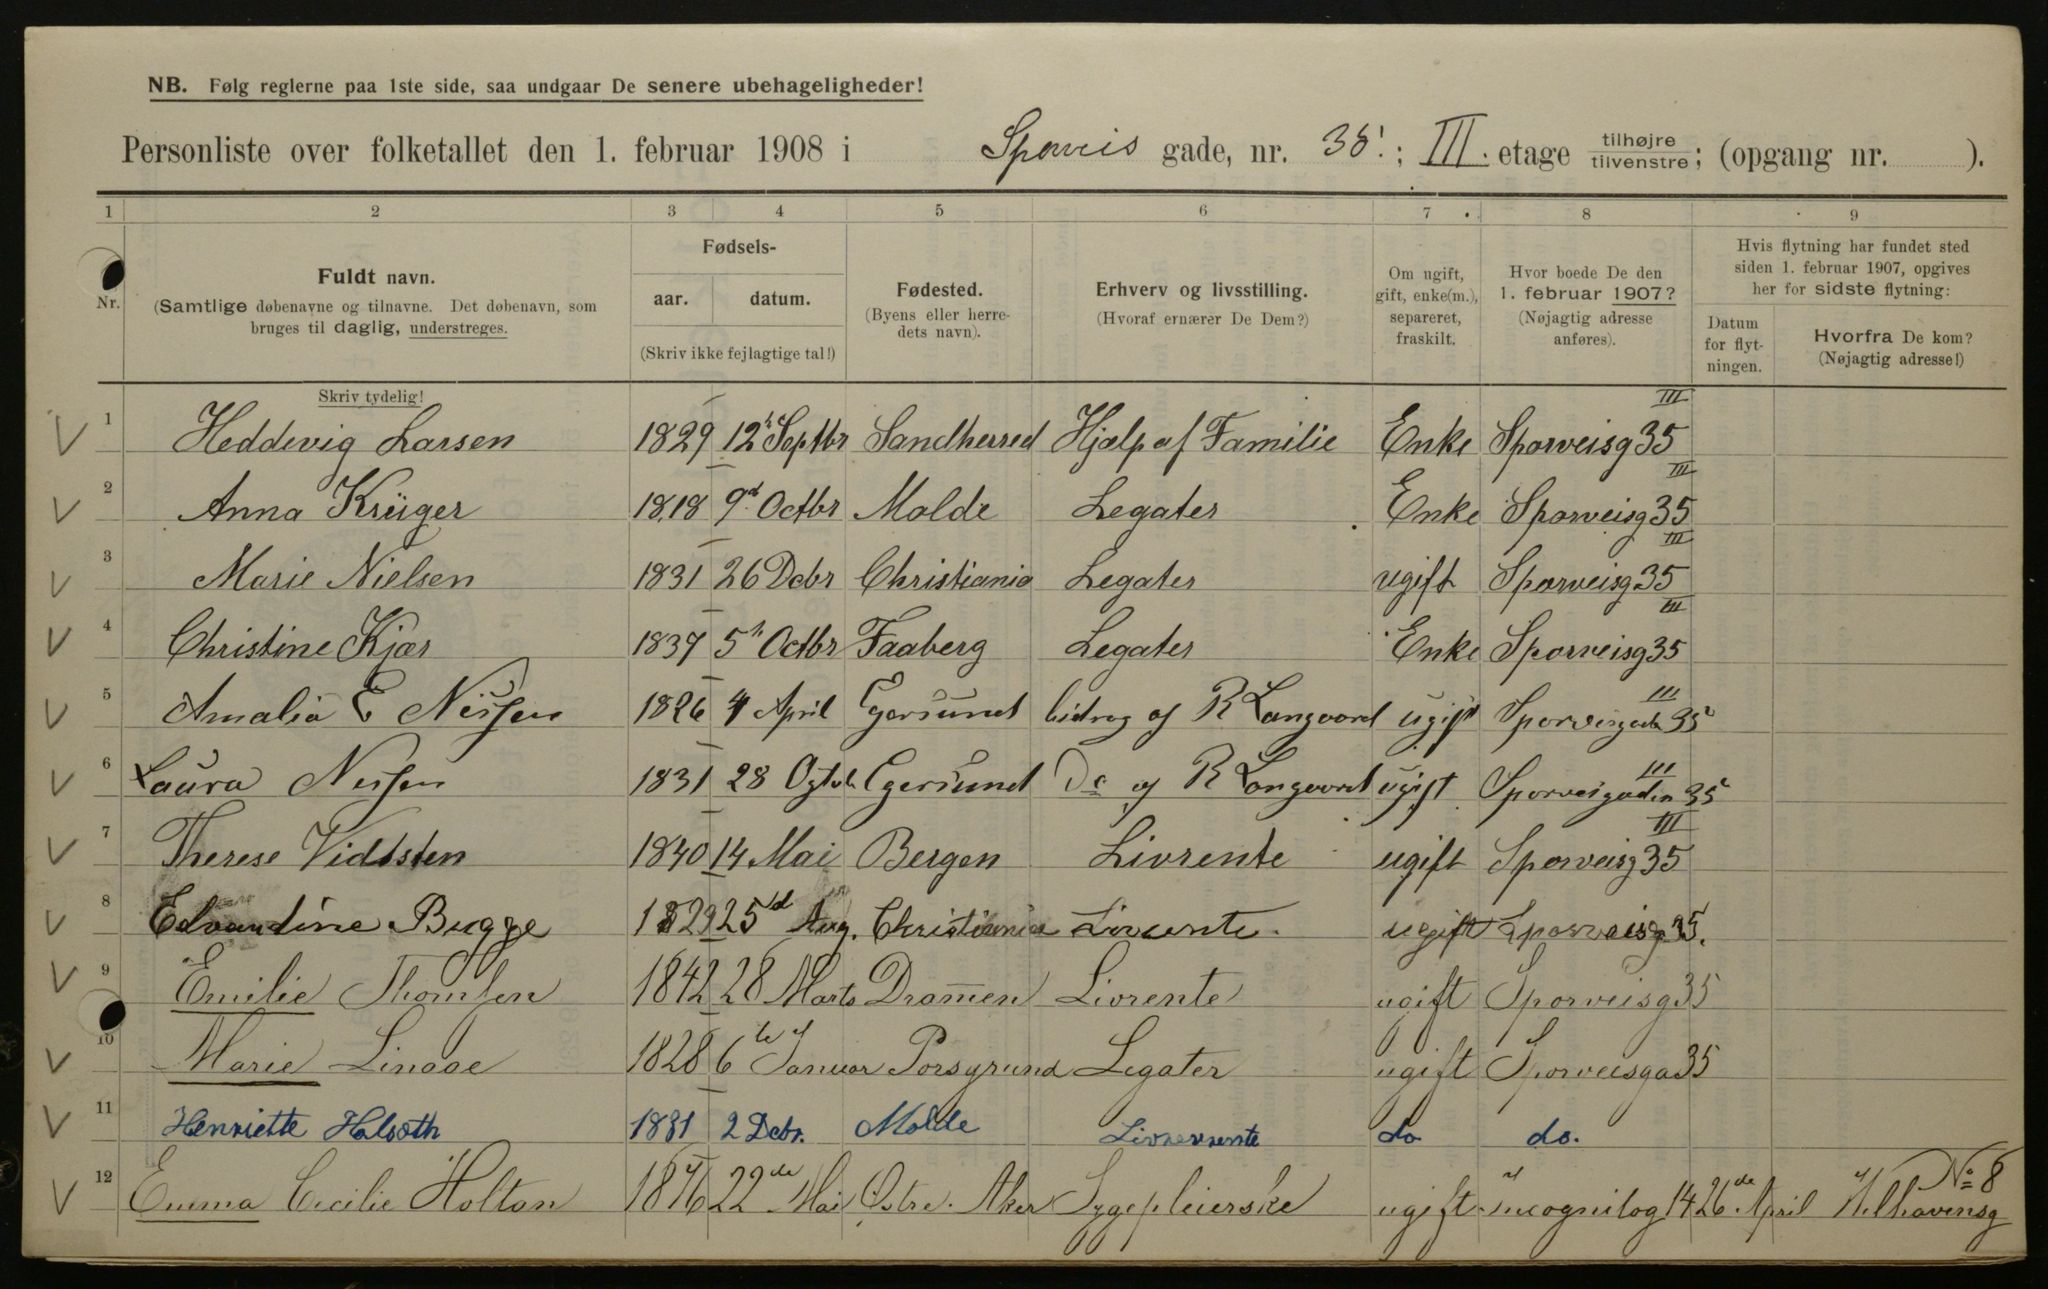 NB. Følg reglerne paa 1ste side, saa undgaar De senere ubehageligheder!
Personliste over folketallet den 1. februar 1908 i Sporveis gade, nr. 35; III. etage tilhøjre tilvenstre; (opgang nr. ).
1 2 3 4 5 6 7 8 9
Nr.
Fuldt navn.
(Samtlige døbenavne og tilnavne. Det døbenavn, som
bruges til daglig, understreges.
Skriv tydelig!
Fødsels-
aar. datum.
(Skriv ikke fejlagtige tal!)
Fødested.
(Byens eller herre-
dets navn).
Erhverv og livsstilling.
(Hvoraf ernærer De Dem?)
Om ugift,
gift, enke(m.),
separeret,
fraskilt.
Hvor boede De den
1. februar 1907?
(Nøjagtig adresse
anføres).
Hvis flytning har fundet sted
siden 1. februar 1907, opgives
her for sidste flytning:
Datum
for flyt-
ningen.
Hvorfra De kom?
(Nøjagtig adresse!)
1 Heddevig Larsen 1829 12 Septbr Sandherred Hjælp af Familie Enke Sporveisg 35 III
2 Anna Krüger 1818 9d Octbr Molde Legater Enke Sporveisg 35 III
3 Marie Nielsen 1831 26 Dcbr Christiania Legater ugift Sporveisg 35 III
4 Christine Kjær 1837 5 Octbr Faaberg Legater Enke Sporveisg 35 III
5 Amalia E Nissen 1826 4 April Egersund bidrag af R Langaard ugift Sporveisgade 35 III
6 Laura Nissen 1831 28 Egersund Do af R Langaard ugift Sporveisgaden 35 III
7 Therese Vidsten 1840 14 Mai Bergen Livrente ugift Sporveisg 35 III
8 Edvardine Bugge 1829 25d Aug. Christiania Livrente. ugift Sporveisg 35.
9 Emilie Thomsen 1842 28 Marts Drammen Livrente ugift Sporveisg 35
10 Marie Linaae 1828 6te Januar Porsgrund Legater ugift Sporveisga 35
11 Henriette 1831 2 Dcbr. Molde do do.
12 Emma Cecilie Holton 1876 22de Mai Østre. Aker Sygepleierske ugift Incognitog 14 26de April Welhavensg No 8